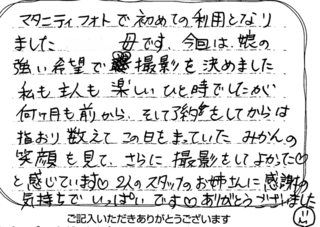 マタニティフォトで初めての利用となり
ました 母です。今回は、娘の
強い希望で 撮影を決めました
私も主人も楽しいひと時でしたが
何ヶ月も前から、そして予約をしてからは
指おり数えてこの日をまっていた みかんの
笑顔を見て、さらに撮影をしてよかった♡
と感じています♡ 2人のスタッフのお姉さんに感謝の
気持ちでいっぱいです♡ ありがとうございました
ご記入いただきありがとうございます